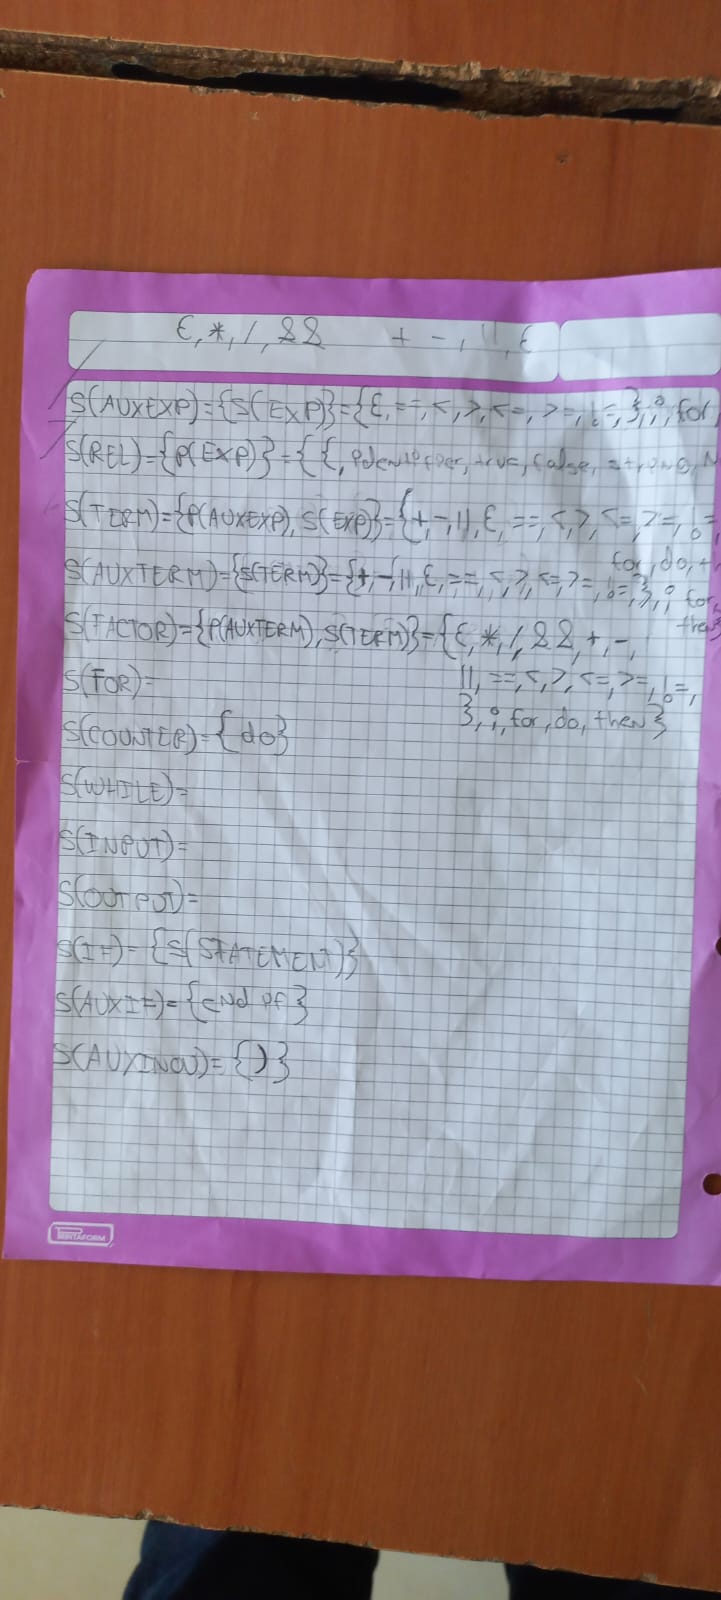 ε, *, /, &&   + -, ||, ε
S(AUXEXP)={S(EXP)}={ε,==,<,>,<=,>=,!=,},;,for,
S(REL)={P(EXP)}={{, identifier, true, false, string, N
S(TERM)={P(AUXEXP), S(EXP)}={+,-,||,ε,==,<,>,<=,>=,!=
for, do, t
S(AUXTERM)={S(TERM)}={+,-,||,ε,==,<,>,<=,>=,!=,},; for,
then}
S(FACTOR)={P(AUXTERM), S(TERM)}={ε,*,/,&&,+,-,
||,==,<,>,<=,>=,!=,
},;,for,do,then}
S(FOR)=
S(COUNTER)={do}
S(WHILE)=
S(INPUT)=
S(OUTPUT)=
S(IF)={S(STATEMENT)}
S(AUXIF)={end if}
S(AUXINOU)={)}
PENTAFORM